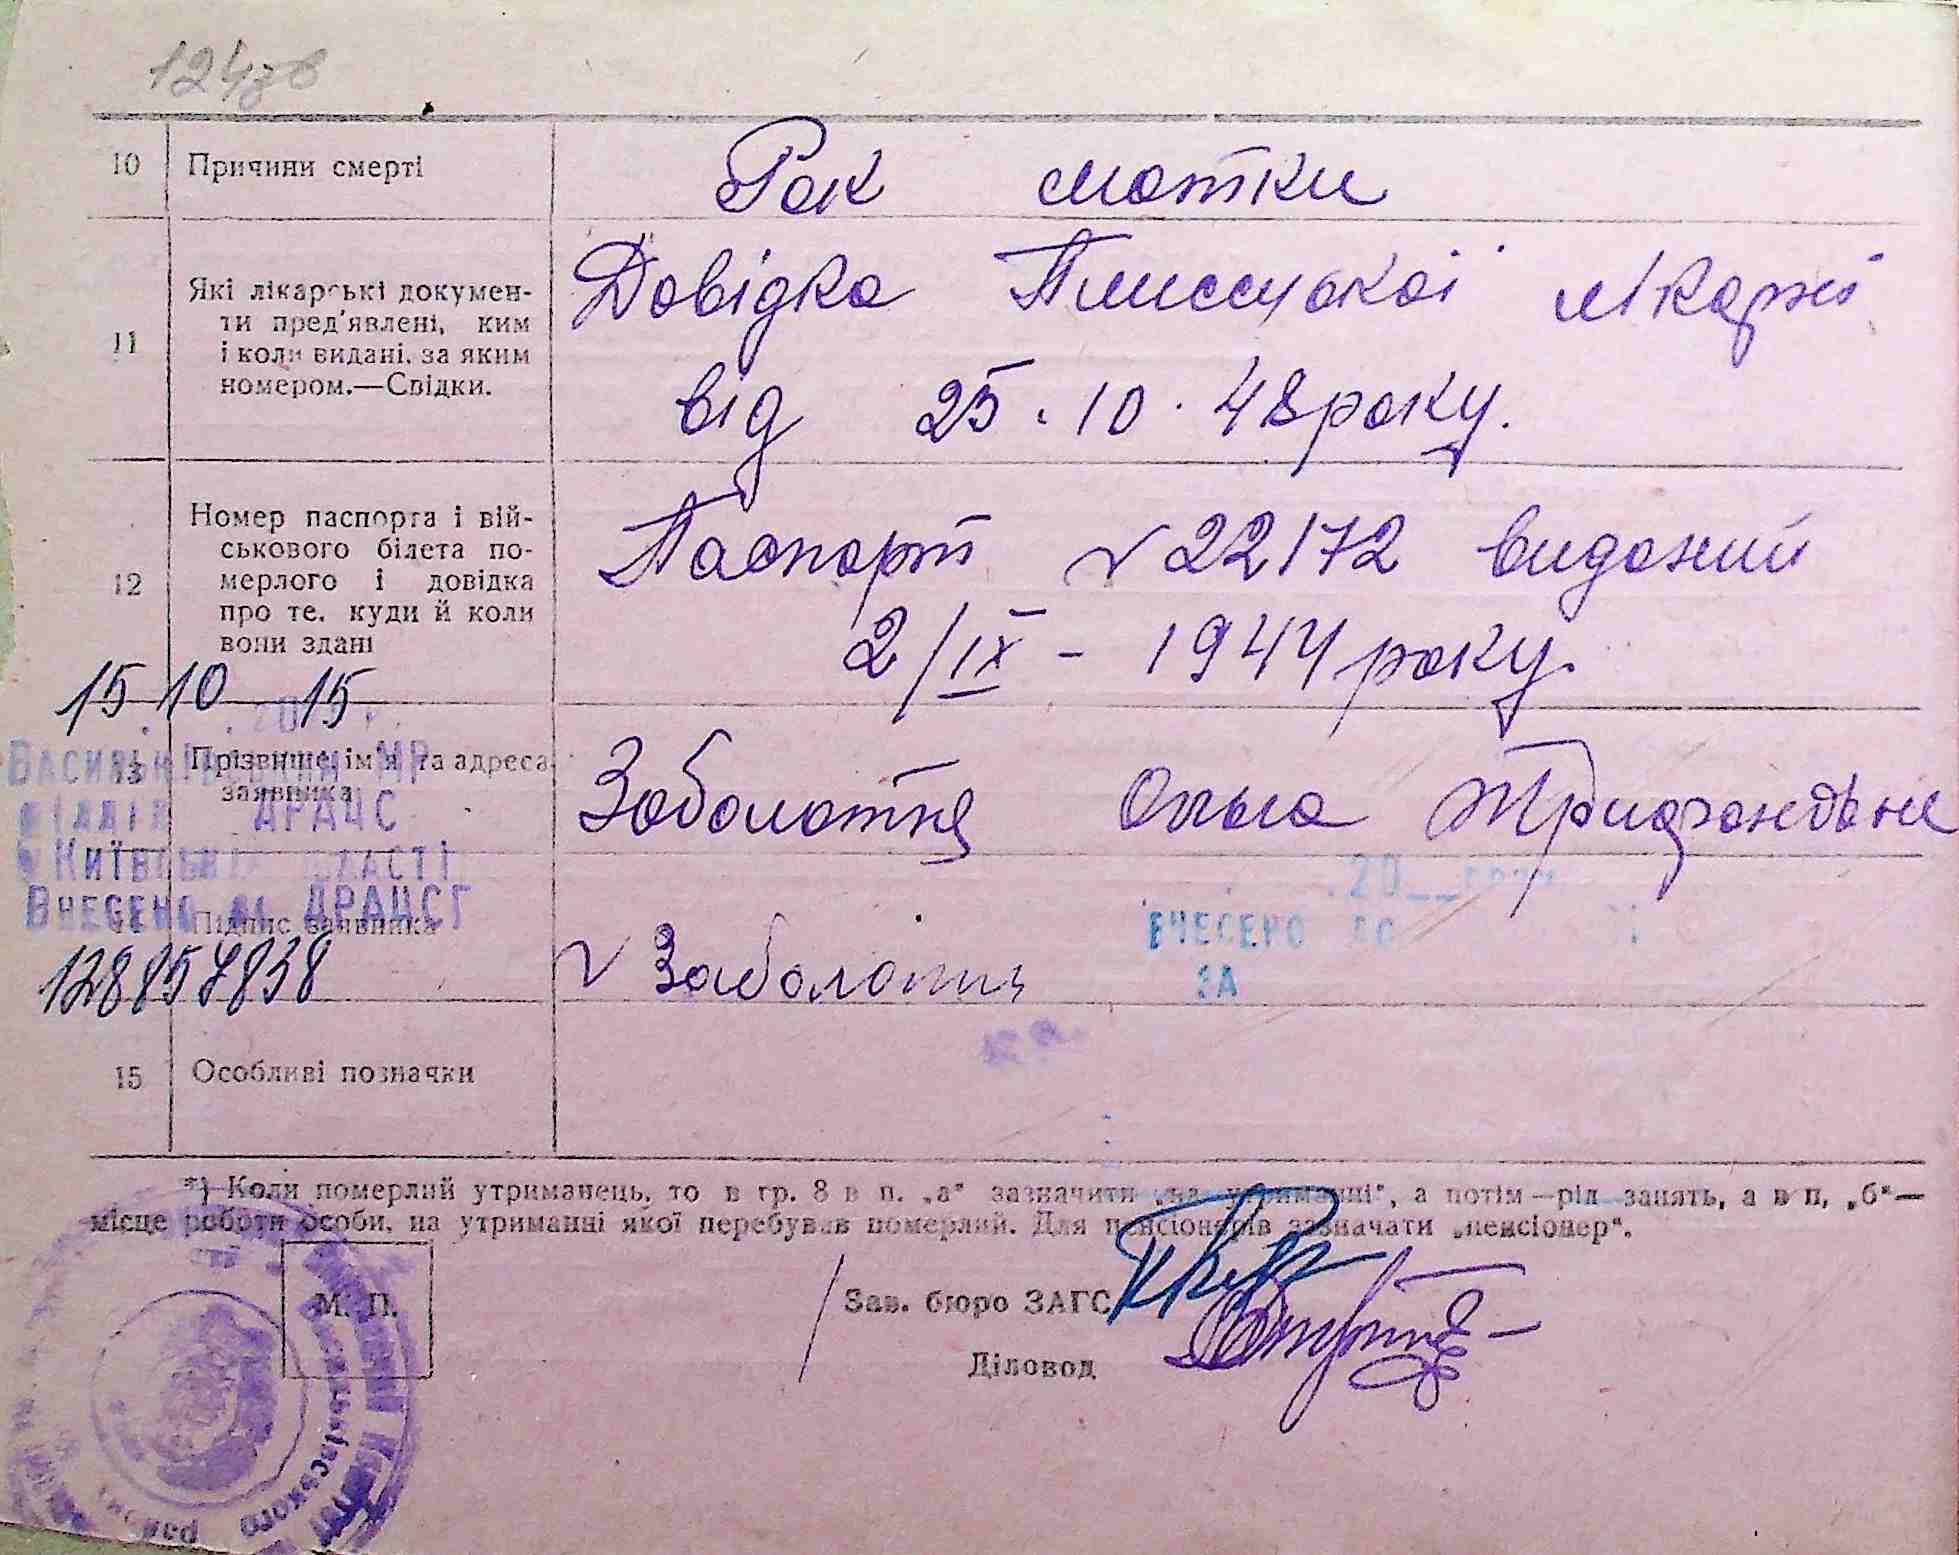 124зв
10 Причини смерті Рак матки
11 Які лікарські докумен-
ти пред'явлені, ким
і коли видані, за яким
номером.—Свідки.
Довідка лікарні
від 25.10.48 року.
12 Номер паспорта і вій-
ськового білета по-
мерлого і довідка
про те, куди й коли
вони здані
Паспорт № 22172 виданий
2/IX - 1944 року.
15 10 15
13 Прізвище, ім'я та адреса
заявника
Заболотня Ольга
МР
відділ ДРАЦС
Київській області
Внесено до ДРАЦСГ
128857838
Підпис заявника
Заболотня
20__
ЗА
15 Особливі позначки
*) Коли померлий утриманець, то в гр. 8 в п. „а“ зазначити „на утриманні“, а потім—рід занять, а в п, „б“—
місце роботи особи, на утриманні якої перебував померлий. Для пенсіонерів зазначати „пенсіонер“.
М. П.
Зав. бюро ЗАГС
Діловод
Васильківського